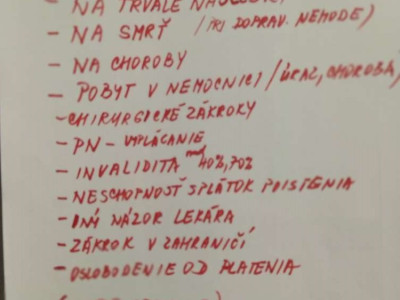 - NA TRVALÉ
- NA SMRŤ (PRI DOPRAV. NEHODE)
- NA CHOROBY
- POBYT V NEMOCNICI / ÚRAZ, CHOROBA
- CHIRURGICKÉ ZÁKROKY
- PN - VYPLÁCANIE
- INVALIDITA 40%, 70%
- NESCHOPNOSŤ SPLÁTOK POISTENIA
- INÝ NÁZOR LEKÁRA
- ZÁKROK V ZAHRANIČÍ
- OSLOBODENIE OD PLATENIA